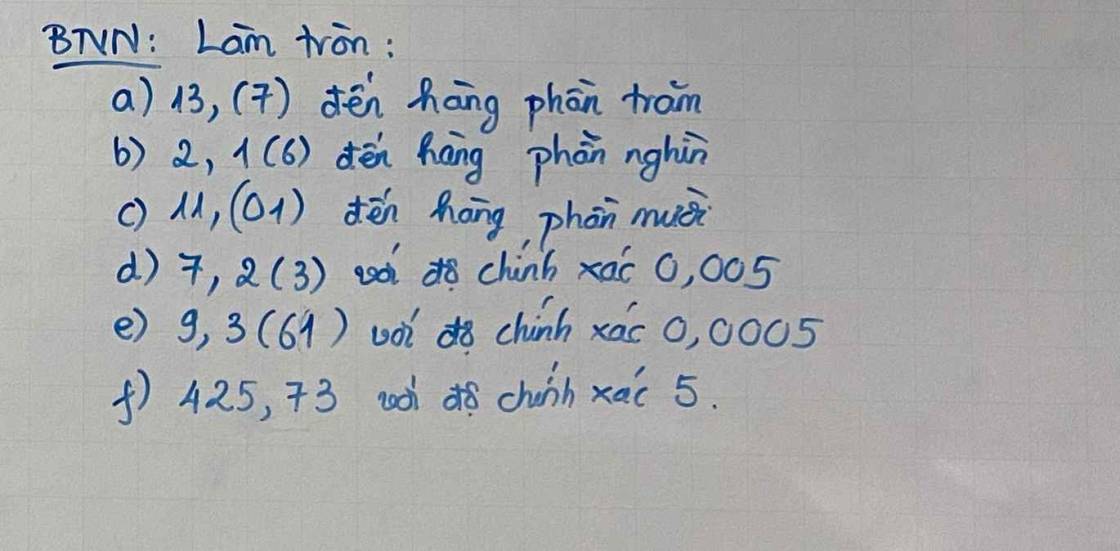 BTVN: Làm tròn:
a) 13,(7) đến hàng phần trăm
b) 2, 1(6) đến hàng phần nghìn
c) 11,(01) đến hàng phần mười
d) 7, 2(3) với độ chính xác 0,005
e) 9, 3(61) với độ chính xác 0,0005
f) 425,73 với độ chính xác 5.